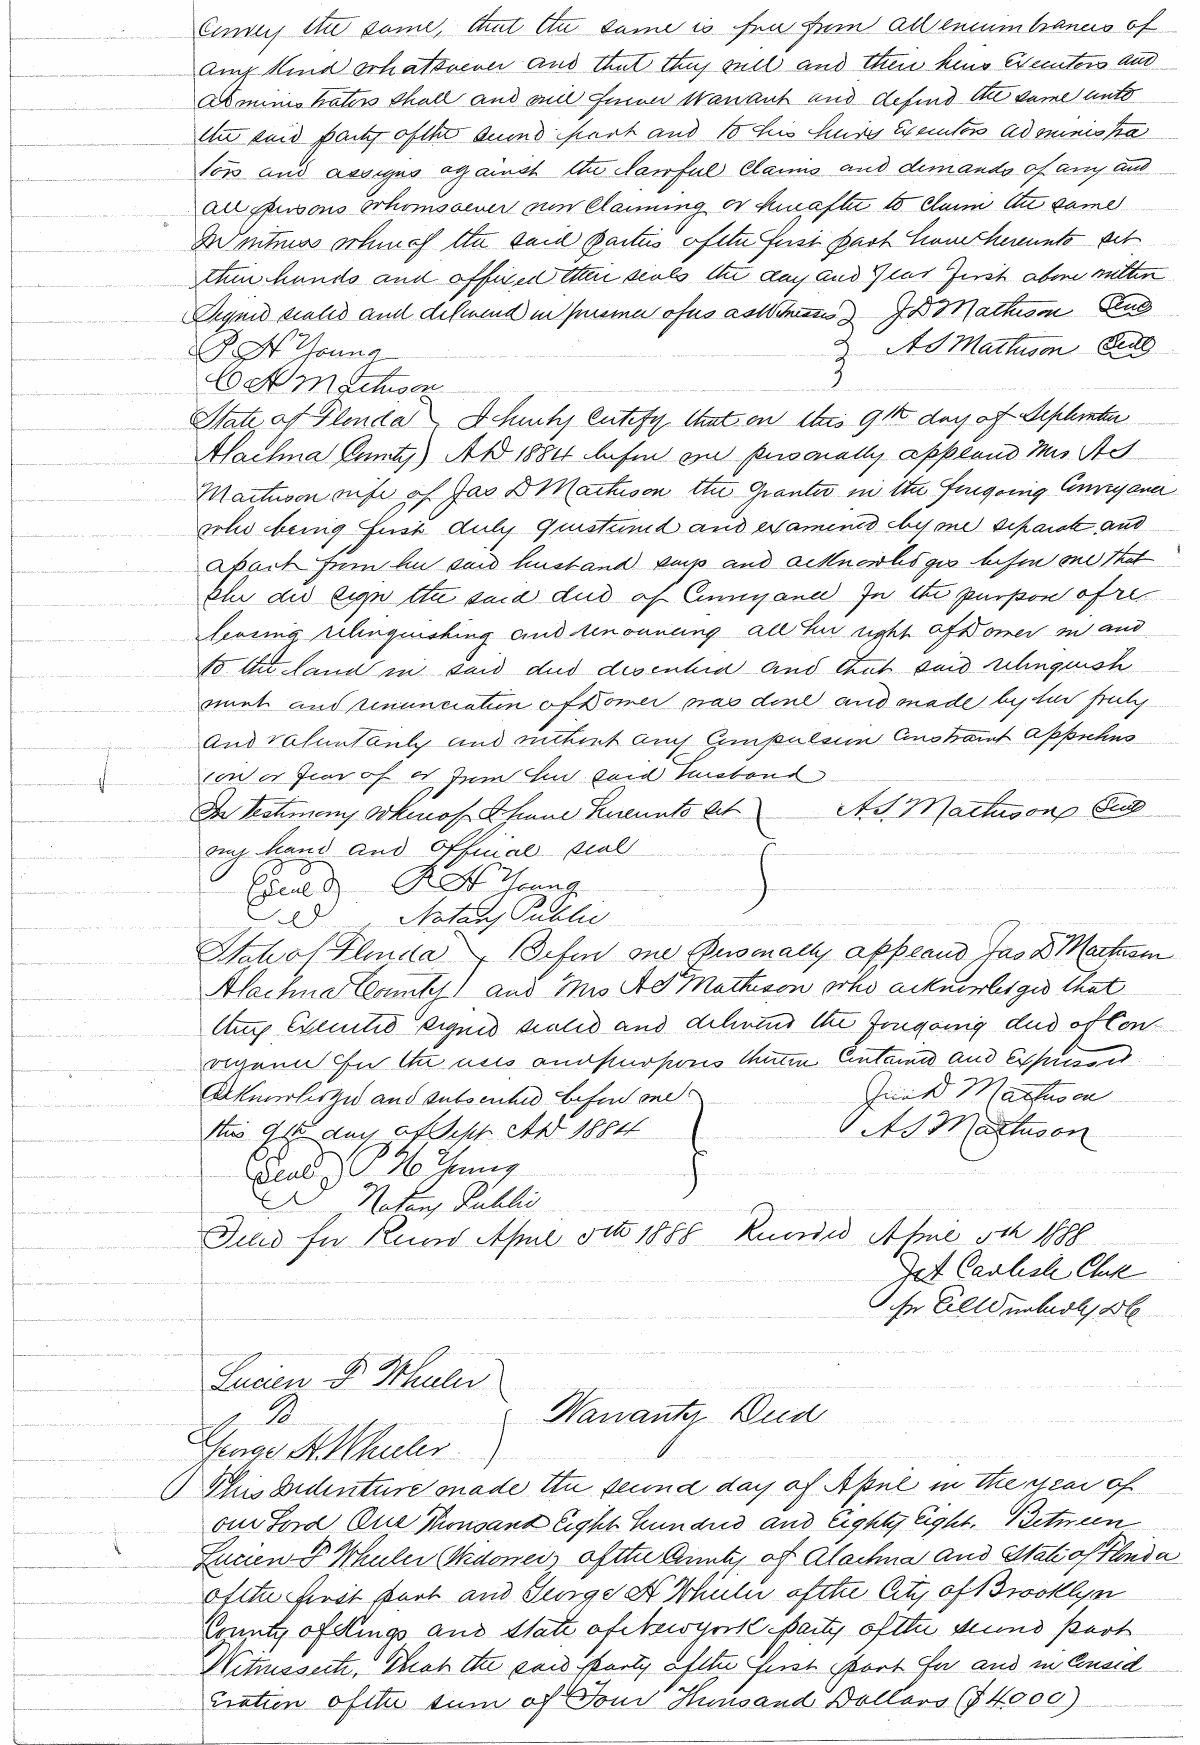 Convey the same, that the same is free from all encumbrances of
any Kind whatsoever and that they will and their heirs Executors and
administrators shall and will forever Warrant and defend the same unto
the said party of the second part and to his heirs Executors administra
tors and assigns against the lawful Claims and demands of any and
all persons whomsoever now Claiming or hereafter to Claim the same
In witness whereof the said parties of the first part have hereunto set
their hands and affixed their seals the day and year first above written
Signed sealed and delivered in presence of us as Witnesses J D Matheson Seal
P. H Young A S Matheson Seal
C A Matheson
State of Florida I hereby Certify that on this 9th day of September
Alachua County) AD 1884 before me personally appeared Mrs A S
Matheson wife of Jas D Matheson the Grantor in the foregoing Conveyance
who being first duly questioned and examined by me separate and
apart from her said husband says and acknowledges before me that
she did sign the said deed of Conveyance for the purpose of re
leasing relinquishing and renouncing all her right of Dower in and
to the land in said deed described and that said relinquish
ment and renunciation of Dower was done and made by her freely
and voluntarily and without any Compulsion Constraint apprehens
ion or fear of or from her said husband
In testimony whereof I have hereunto set A. S. Matheson Seal
my hand and official seal
(Seal) P H Young
Notary Public
State of Florida Before me Personally appeared Jas D Matheson
Alachua County) and Mrs A S Matheson who acknowledged that
they Executed signed sealed and delivered the foregoing deed of Con
veyance for the uses and purposes therein Contained and Expressed
Acknowledged and subscribed before me D Matheson
this 9th day of Sept AD 1884 A S Matheson
(Seal) P H Young
Notary Public
Filed for Record April 5th 1888 Recorded April 5th 1888
J A Carlisle Clerk
per DC
Lucien F Wheeler
To Warranty Deed
George H. Wheeler
This Indenture made the second day of April in the year of
our Lord One Thousand Eight hundred and Eighty Eight. Between
Lucien F Wheeler (Widower) of the County of Alachua and State of Florida
of the first part and George H Wheeler of the City of Brooklyn
County of Kings and state of Newyork party of the second part
Witnesseth, That the said party of the first part for and in Consid
eration of the sum of Four Thousand Dollars ($4000)